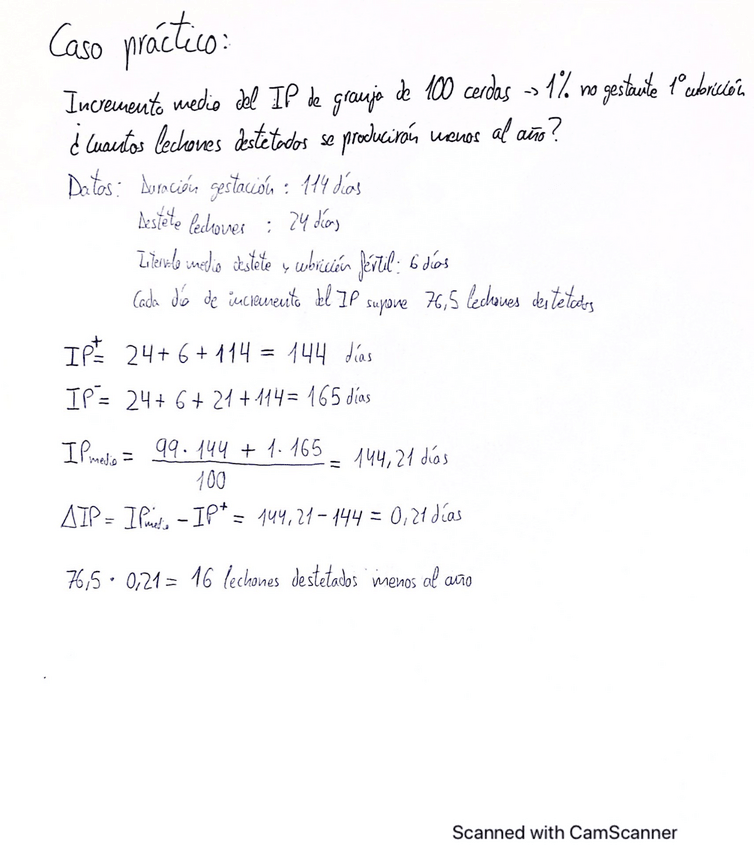 Caso práctico:
Incremento medio del IP de granja de 100 cerdas → 1% no gestante 1º cubrición
¿Cuantos lechones destetados se producirán menos al año?
Datos: Duración gestación : 114 días
Destete lechones : 24 días
Intervalo medio destete y cubrición fértil: 6 días
Cada día de incremento del IP supone 76,5 lechones destetados
IP⁺= 24 + 6 + 114 = 144 días
IP⁻= 24 + 6 + 21 + 114 = 165 días
IPmedio = (99 · 144 + 1 · 165) / 100 = 144,21 días
ΔIP = IPmedio - IP⁺ = 144,21 - 144 = 0,21 días
76,5 · 0,21 = 16 lechones destetados menos al año
Scanned with CamScanner